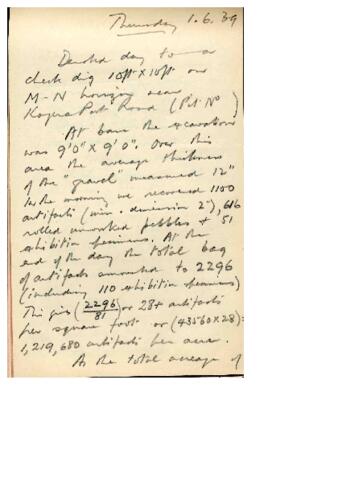 Thursday 1.6.39
Devoted day to a
check dig 10ft x 10ft on
M-N horizon near
Kagera Port Road (Pit No )
At base the excavation
was 9'0" x 9'0". Over this
area the average thickness
of the "gravel" measured 12"
In the morning we recovered 1100
artifacts (min. dimension 2"), 616
rolled unworked pebbles + 51
exhibition specimens. At the
end of the day the total bag
of artifacts amounted to 2296
(including 110 exhibition specimens)
This gives (2296/81) or 28+ artifacts
per square foot or (43560 x 28) =
1,219,680 artifacts per acre.
As the total acreage of